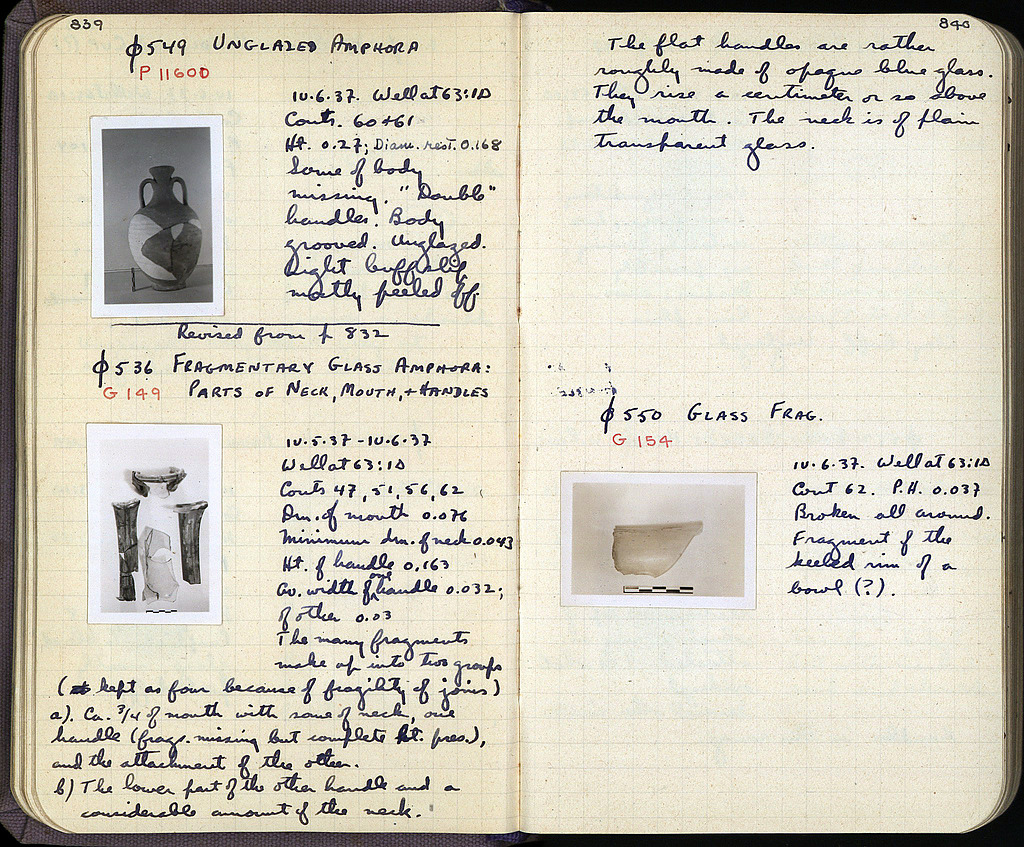 839
ϕ549 UNGLAZED AMPHORA
P 11600
10.6.37. Well at 63:1Δ
Conts. 60+61
Ht. 0.27; Diam. rest. 0.168
Some of body
missing. "Double"
handles. Body
grooved. Unglazed.
Light buff slip
mostly peeled off.
Revised from p 832
ϕ536 FRAGMENTARY GLASS AMPHORA:
G 149 PARTS OF NECK, MOUTH, + HANDLES
10.5.37 - 10.6.37
Well at 63:1Δ
Conts 47, 51, 56, 62
Dm. of mouth 0.076
Minimum dm. of neck 0.043
Ht. of handle 0.163
Av. width of one handle 0.032;
of other 0.03
The many fragments
make up into two groups
(kept as four because of fragility of joins)
a). Ca. 3/4 of mouth with some of neck, one
handle (frags. missing but complete ht. pres.),
and the attachment of the other.
b) The lower part of the other handle and a
considerable amount of the neck.
840
The flat handles are rather
roughly made of opaque blue glass.
They rise a centimeter or so above
the mouth. The neck is of plain
transparent glass.
ϕ550 GLASS FRAG.
G 154
10.6.37. Well at 63:1Δ
Cont 62. P.H. 0.037
Broken all around.
Fragment of the
keeled rim of a
bowl (?).